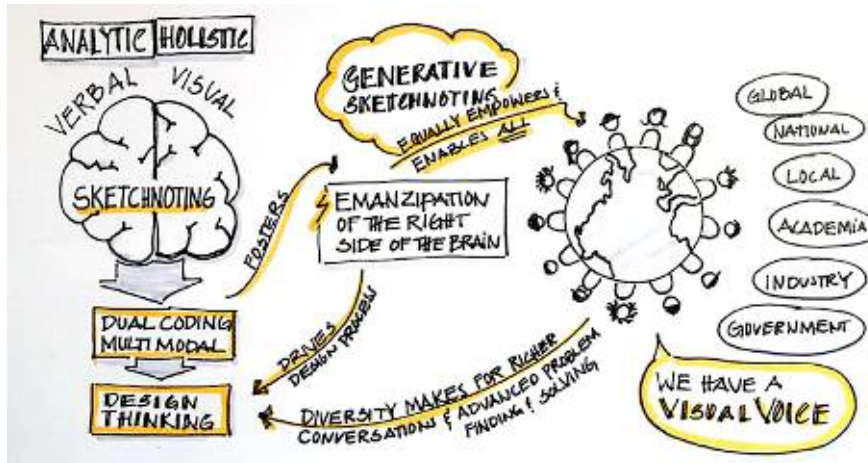 ANALYTIC HOLISTIC
VERBAL VISUAL
SKETCHNOTING
DUAL CODING
MULTI MODAL
DESIGN
THINKING
FOSTERS
GENERATIVE
SKETCHNOTING
EQUALLY EMPOWERS &
ENABLES ALL
EMANZIPATION
OF THE RIGHT
SIDE OF THE BRAIN
DRIVES
DESIGN PROCESS
DIVERSITY MAKES FOR RICHER
CONVERSATIONS & ADVANCED PROBLEM
FINDING & SOLVING
GLOBAL
NATIONAL
LOCAL
ACADEMIA
INDUSTRY
GOVERNMENT
WE HAVE A
VISUAL VOICE